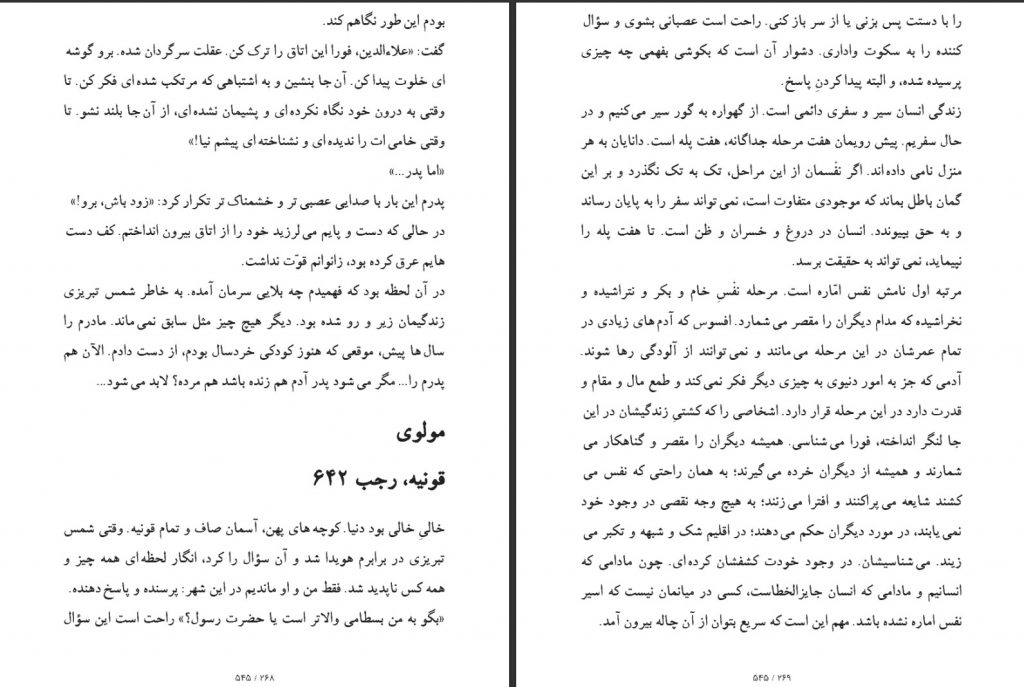 بودم این طور نگاهم کند.
گفت: «علاءالدین، فورا این اتاق را ترک کن. عقلت سرگردان شده. برو گوشه
ای خلوت پیدا کن. آن جا بنشین و به اشتباهی که مرتکب شده ای فکر کن. تا
وقتی به درون خود نگاه نکرده ای و پشیمان نشده ای، از آن جا بلند نشو. تا
وقتی خامی ات را ندیده ای و نشناخته ای پیشم نیا!»
«اما پدر...»
پدرم این بار با صدایی عصبی تر و خشمناک تر تکرار کرد: «زود باش، برو!»
در حالی که دست و پایم می لرزید خود را از اتاق بیرون انداختم. کف دست
هایم عرق کرده بود، زانوانم قوّت نداشت.
در آن لحظه بود که فهمیدم چه بلایی سرمان آمده. به خاطر شمس تبریزی
زندگیمان زیر و رو شده بود. دیگر هیچ چیز مثل سابق نمی ماند. مادرم را
سال ها پیش، موقعی که هنوز کودکی خردسال بودم، از دست دادم. الآن هم
پدرم را... مگر می شود پدر آدم هم زنده باشد هم مرده؟ لابد می شود...
مولوی
قونیه، رجب ۶۴۲
خالیِ خالی بود دنیا. کوچه های پهن، آسمان صاف و تمام قونیه. وقتی شمس
تبریزی در برابرم هویدا شد و آن سؤال را کرد، انگار لحظه ای همه چیز و
همه کس ناپدید شد. فقط من و او ماندیم در این شهر: پرسنده و پاسخ دهنده.
«بگو به من بسطامی والاتر است یا حضرت رسول؟» راحت است این سؤال
۵۴۵ / ۲۶۸
را با دستت پس بزنی یا از سر باز کنی. راحت است عصبانی بشوی و سؤال
کننده را به سکوت واداری. دشوار آن است که بکوشی بفهمی چه چیزی
پرسیده شده، و البته پیدا کردنِ پاسخ.
زندگی انسان سیر و سفری دائمی است. از گهواره به گور سیر می کنیم و در
حال سفریم. پیش رویمان هفت مرحله جداگانه، هفت پله است. دانایان به هر
منزل نامی داده اند. اگر نفْسمان از این مراحل، تک به تک نگذرد و بر این
گمان باطل بماند که موجودی متفاوت است، نمی تواند سفر را به پایان رساند
و به حق بپیوندد. انسان در دروغ و خسران و ظن است. تا هفت پله را
نپیماید، نمی تواند به حقیقت برسد.
مرتبه اول نامش نفس امّاره است. مرحله نفْسِ خام و بکر و نتراشیده و
نخراشیده که مدام دیگران را مقصر می شمارد. افسوس که آدم های زیادی در
تمام عمرشان در این مرحله می مانند و نمی توانند از آلودگی رها شوند.
آدمی که جز به امور دنیوی به چیزی دیگر فکر نمی کند و طمع مال و مقام و
قدرت دارد در این مرحله قرار دارد. اشخاصی را که کشتیِ زندگیشان در این
جا لنگر انداخته، فورا می شناسی. همیشه دیگران را مقصر و گناهکار می
شمارند و همیشه از دیگران خرده می گیرند؛ به همان راحتی که نفس می
کشند شایعه می پراکنند و افترا می زنند؛ به هیچ وجه نقصی در وجود خود
نمی یابند، در مورد دیگران حکم می دهند؛ در اقلیم شک و شبهه و تکبر می
زیند. می شناسیشان. در وجود خودت کشفشان کرده ای. چون مادامی که
انسانیم و مادامی که انسان جایزالخطاست، کسی در میانمان نیست که اسیر
نفس اماره نشده باشد. مهم این است که سریع بتوان از آن چاله بیرون آمد.
۵۴۵ / ۲۶۹